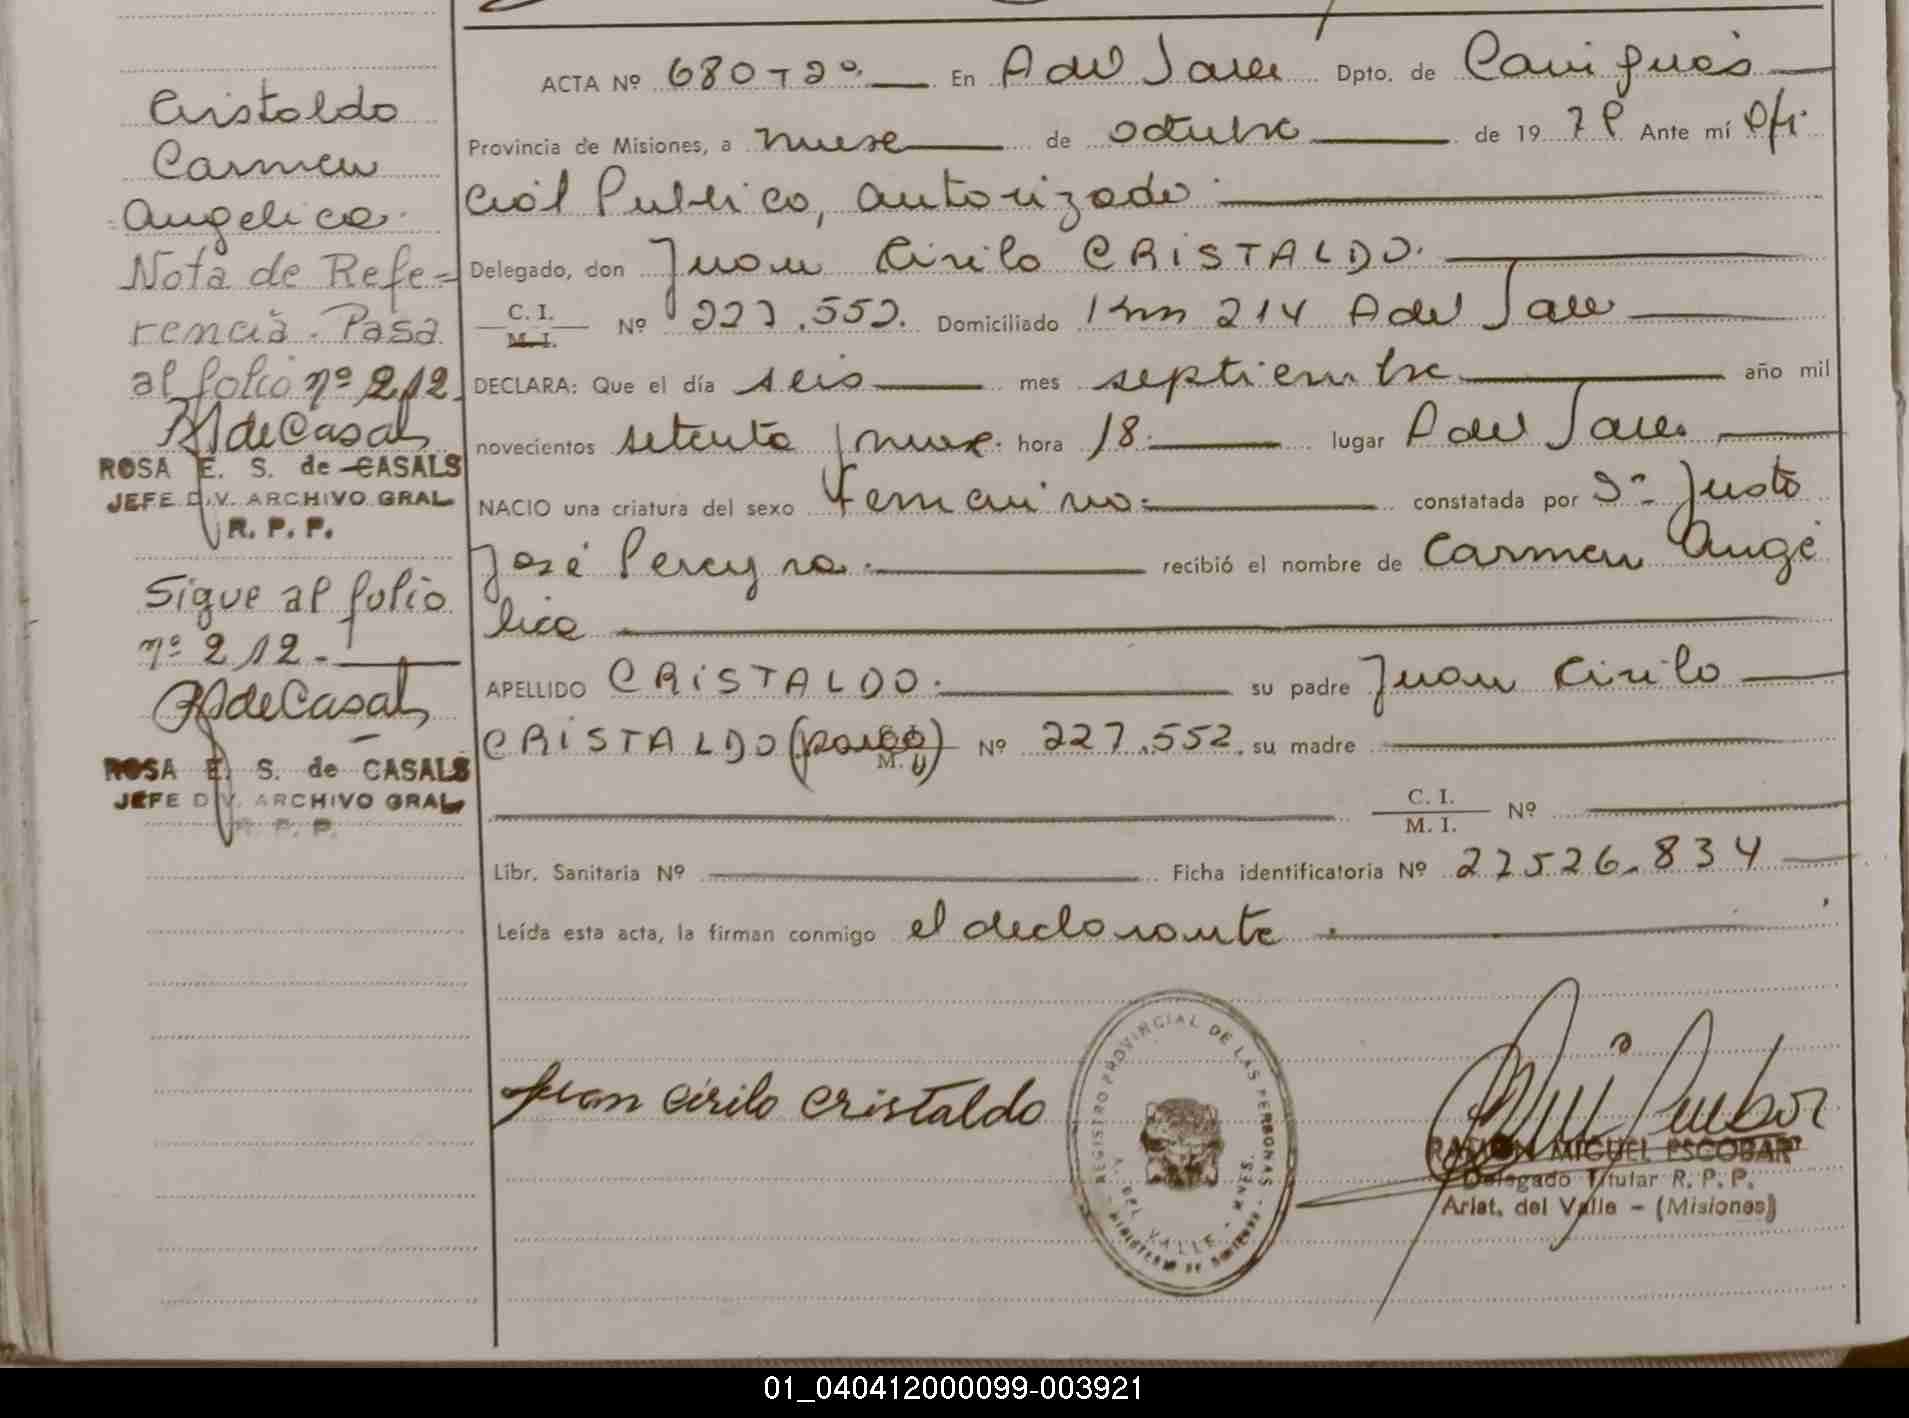 Cristaldo
Carmen
Angelica.
Nota de Refe=
rencia. Pasa
al folio nº 212.
RSdeCasals
ROSA E. S. de CASALS
JEFE DIV. ARCHIVO GRAL
R. P. P.
Sigue al folio
nº 212.-
RSdeCasals
ROSA E. S. de CASALS
JEFE DIV. ARCHIVO GRAL
R. P. P.
ACTA Nº 680-Tº2º. En A del Valle Dpto. de Cainguás
Provincia de Misiones, a nueve de octubre de 1979 Ante mí Ofi
cial Publico, autorizado
Delegado, don Juan Cirilo CRISTALDO.
C. I.
M. I. Nº 227.552. Domiciliado Km 214 A del Valle
DECLARA: Que el día seis mes septiembre año mil
novecientos setenta y nueve. hora 18. lugar A del Valle.
NACIO una criatura del sexo femenino. constatada por Dn. Justo
José Pereyra. recibió el nombre de Carmen Angé
lica
APELLIDO CRISTALDO. su padre Juan Cirilo
CRISTALDO Nº 227.552. su madre
C. I.
M. I. Nº
Libr. Sanitaria Nº Ficha identificatoria Nº 27526.834
Leída esta acta, la firman conmigo el declarante.
Juan Cirilo Cristaldo
REGISTRO PROVINCIAL DE LAS PERSONAS
A. DEL VALLE - MNES.
MINISTERIO DE GOBIERNO
RAMON MIGUEL ESCOBAR
Delegado Titular R. P. P.
Arist. del Valle - (Misiones)
01_040412000099-003921